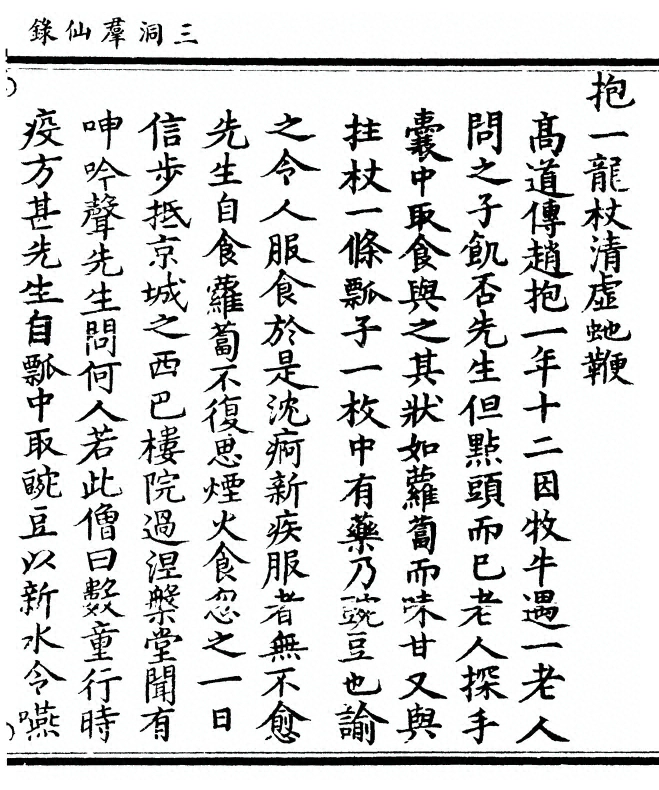 三洞羣仙錄
抱一龍杖清虛虵鞭
高道傳趙抱一年十二因牧牛遇一老人
問之子飢否先生但點頭而已老人探手
囊中取食與之其狀如蘿蔔而味甘又與
拄杖一條瓢子一枚中有藥乃豌豆也諭
之令人服食於是沈痾新疾服者無不愈
先生自食蘿蔔不復思煙火食忽之一日
信步抵京城之西巴樓院過涅槃堂聞有
呻吟聲先生問何人若此僧曰數童行時
疫方甚先生自瓢中取豌豆以新水令嚥